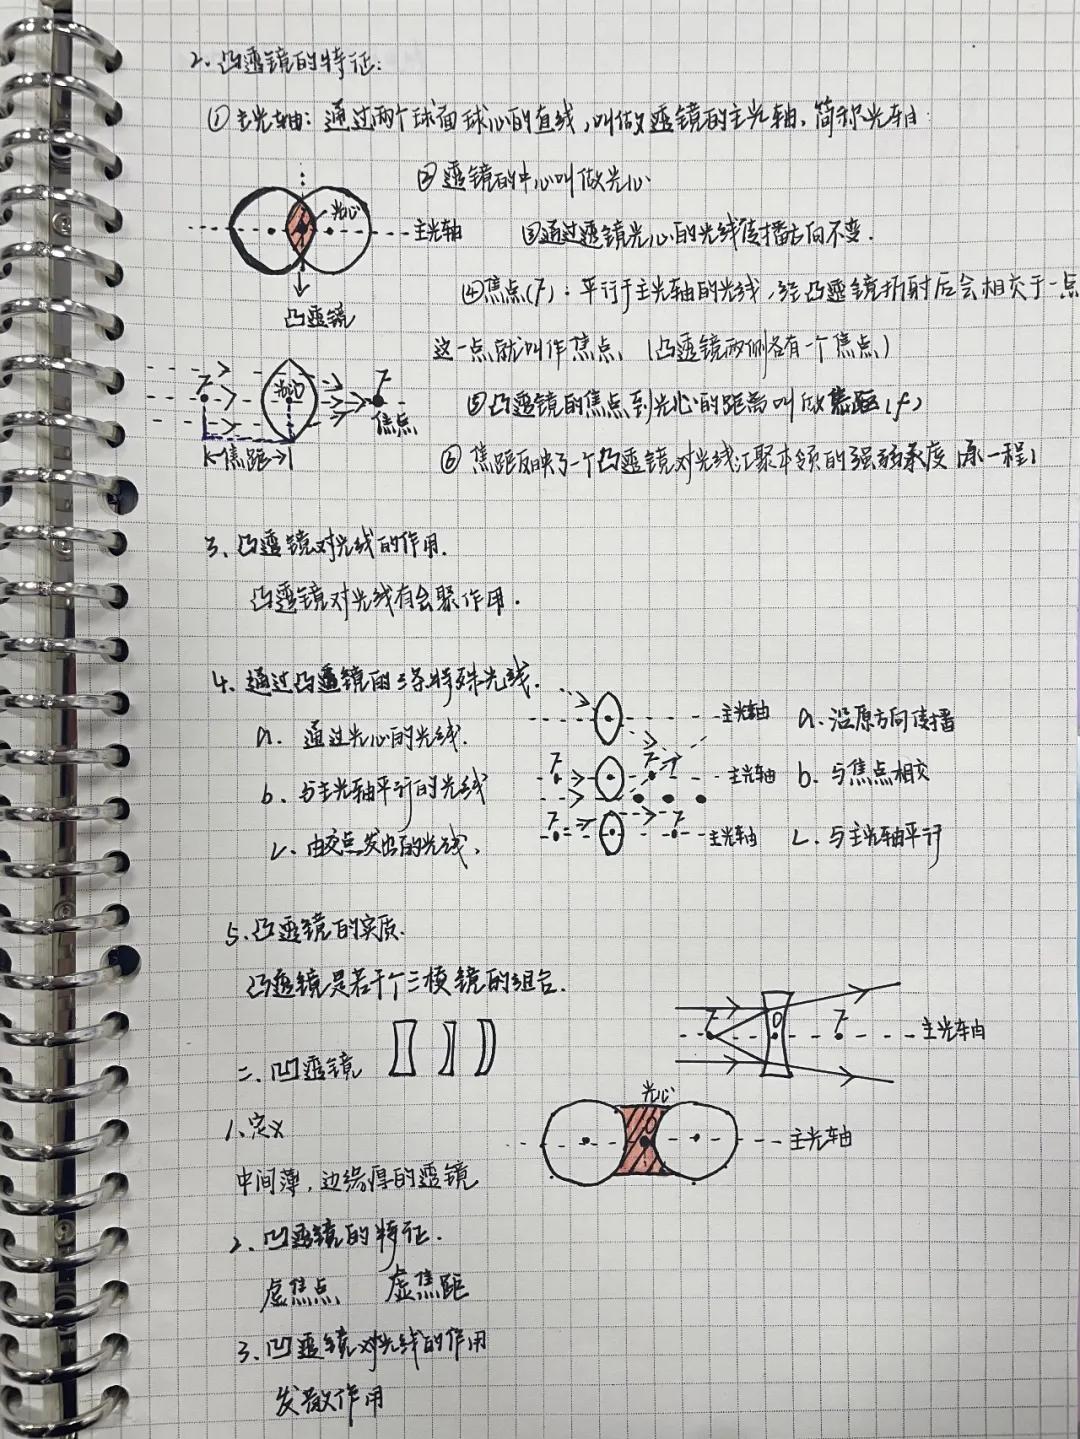 2、凸透镜的特征:
①主光轴：通过两个球面球心的直线,叫做透镜的主光轴,简称光轴:
②透镜的中心叫做光心
光心
主光轴
③通过透镜光心的光线传播方向不变.
凸透镜
④焦点(F)：平行于主光轴的光线,经凸透镜折射后会相交于一点
这一点,就叫作焦点、(凸透镜两侧各有一个焦点)
F
光心O
F
焦点
⑤凸透镜的焦点到光心的距离叫做焦距(f)
K焦距→|
⑥焦距反映了一个凸透镜对光线汇聚本领的强弱
3、凸透镜对光线的作用.
凸透镜对光线有会聚作用.
4、通过凸透镜的3条特殊光线.
主光轴
a.沿原方向传播
a. 通过光心的光线.
F
F
主光轴
b. 与焦点相交
b. 与主光轴平行的光线
F
F
主光轴
c. 与主光轴平行
c. 由交点发出的光线、
5、凸透镜的实质.
凸透镜是若干个三棱镜的组合.
F
O
F
主光轴
二、凹透镜
光心
O
主光轴
1、定义
中间薄,边缘厚的透镜
2、凹透镜的特征.
虚焦点、 虚焦距
3、凹透镜对光线的作用
发散作用